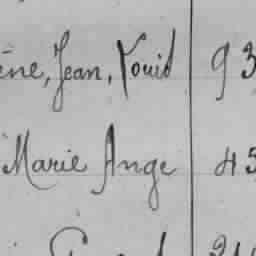 ène, Jean, Louis 93
Marie Ange 45